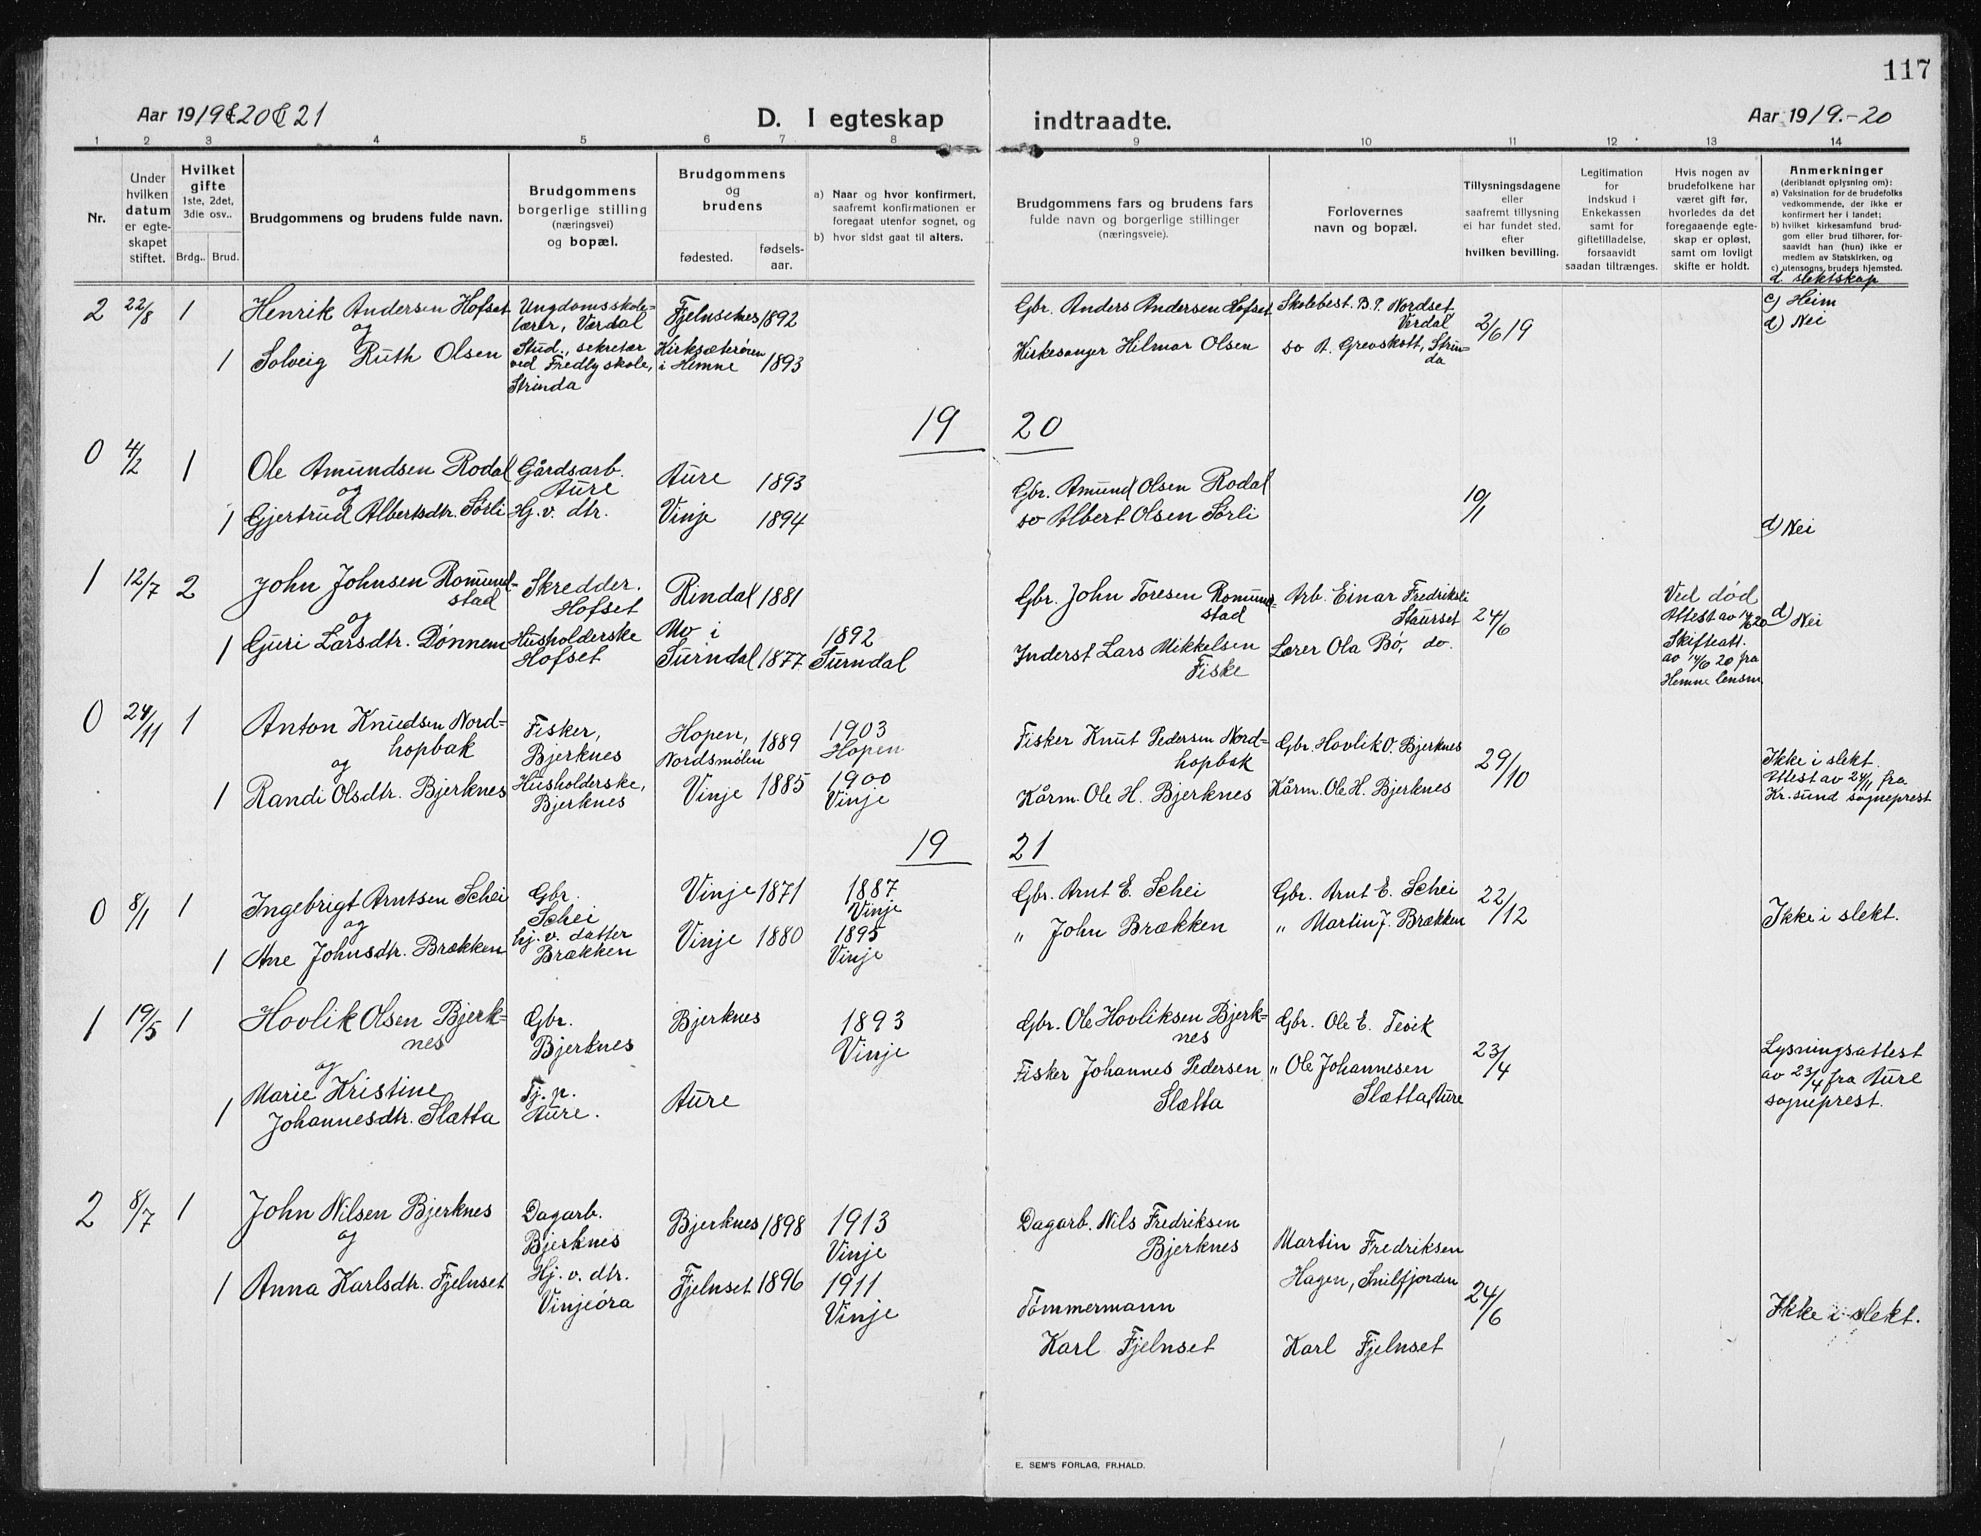 117
Aar 1919 & 20 & 21
D. I egteskap
indtraadte.
Aar 1919.-20
1 2 3 4 5 6 7 8 9 10 11 12 13 14
Nr.
Under hvilken datum er egte-skapet stiftet.
Hvilket gifte 1ste, 2det, 3die osv..
Brdg.. Brud.
Brudgommens og brudens fulde navn.
Brudgommens borgerlige stilling (næringsvei) og bopæl.
Brudgommens og brudens
fødested.
fødsels-aar.
a) Naar og hvor konfirmert, saafremt konfirmationen er foregaat utenfor sognet, og
b) hvor sidst gaat til alters.
Brudgommens fars og brudens fars fulde navn og borgerlige stillinger (næringsveie).
Forlovernes navn og bopæl.
Tillysningsdagene eller saafremt tillysning ei har fundet sted. efter hvilken bevilling.
Legitimation for Indskud i Enkekassen samt for giftetilladelse, forsaavidt saadan tiltrænges.
Hvis nogen av brudefolkene har været gift før, hvorledes da det foregaaende egte-skap er opløst, samt om lovligt skifte er holdt.
Anmerkninger (deriblandt oplysning om):
a) Vaksination for de brudefolks vedkommende, der ikke er konfirmert her i landet;
b) hvilket kirkesamfund brud-gom eller brud tilhører, for-saavidt han (hun) ikke er medlem av Statskirken, og
c) utensogns bruders hjemsted.
d. slektskap
2 22/8 1 Henrik Andersen Hofset Ungdomsskole-lærer, Værdal Fjelnsetnes 1892 Gbr. Anders Andersen Hofset Skolebest. B. P. Nordset Verdal 2/6 19 c) Heim
og d) Nei
1 Solveig Ruth Olsen Stud., sekretær ved Fredly skole, Strinda Kirksæterøren i Hemne 1893 Kirkesanger Hilmar Olsen so A. Grevskott, Strinda
19 20
0 4/2 1 Ole Amundsen Rodal Gårdsarb. Aure Aure 1893 Gbr. Amund Olsen Rodal 10/1
og
1 Gjertrud Albertsdtr. Sørli Hj. v. dtr. Vinje 1894 so Albert Olsen Sørli d) Nei
1 12/7 2 John Johnsen Romund-stad Skredder. Hofset Rindal 1881 Gbr. John Toresen Romund-stad Arb. Einar Fredriksli Staurset 24/6 Ved død Attest av 14/6 20 d) Nei
og Skifteatt. av 14/6 20 fra Hemne lensm.
1 Guri Larsdtr. Dønnem Husholderske Hofset Mo i Surndal 1877. 1892 Surndal Inderst Lars Mikkelsen Fiske Lærer Ola Bø, do.
0 24/11 1 Anton Knudsen Nord-hopbak Fisker, Bjerknes Hopen, Nordsmølen 1889 1903 Hopen Fisker Knut Pedersen Nord-hopbak Gbr. Hovlik O. Bjerknes 29/10 Ikke i slekt. Attest av 24/11 fra Kr.sund sogneprest
og
1 Randi Olsdtr. Bjerknes Husholderske, Bjerknes Vinje 1885 1900 Vinje Kårm. Ole H. Bjerknes Kårm. Ole H. Bjerknes
19 21
0 8/1 1 Ingebrigt Arntsen Schei Gbr. Schei Vinje 1871 1887 Vinje Gbr. Arnt E. Schei Gbr. Arnt E. Schei 22/12 Ikke i slekt.
og
1 Ane Johnsdtr. Brækken hj. v. datter Brækken Vinje 1880 1895 Vinje " John Brækken " Martin J. Brækken
1 19/5 1 Hovlik Olsen Bjerk-nes Gbr. Bjerknes Bjerknes 1893 Vinje Gbr. Ole Hovliksen Bjerk-nes Gbr. Ole E. Tevik 23/4 Lysningsattest av 23/4 fra Aure sogneprest.
og
1 Marie Kristine Johannesdtr. Slætta Tj. p. Aure. Aure Fisker Johannes Pedersen Slætta " Ole Johannesen Slætta, Aure
2 8/7 1 John Nilsen Bjerknes Dagarb. Bjerknes Bjerknes 1898 1913 Vinje Dagarb. Nils Fredriksen Bjerknes Martin Fredriksen Hagen, Snilfjorden 24/6 Ikke i slekt.
og
1 Anna Karlsdtr. Fjelnset Hj. v. dtr. Vinjeøra Fjelnset 1896 1911 Vinje Tømmermann Karl Fjelnset Karl Fjelnset
E. SEM'S FORLAG, FR.HALD.